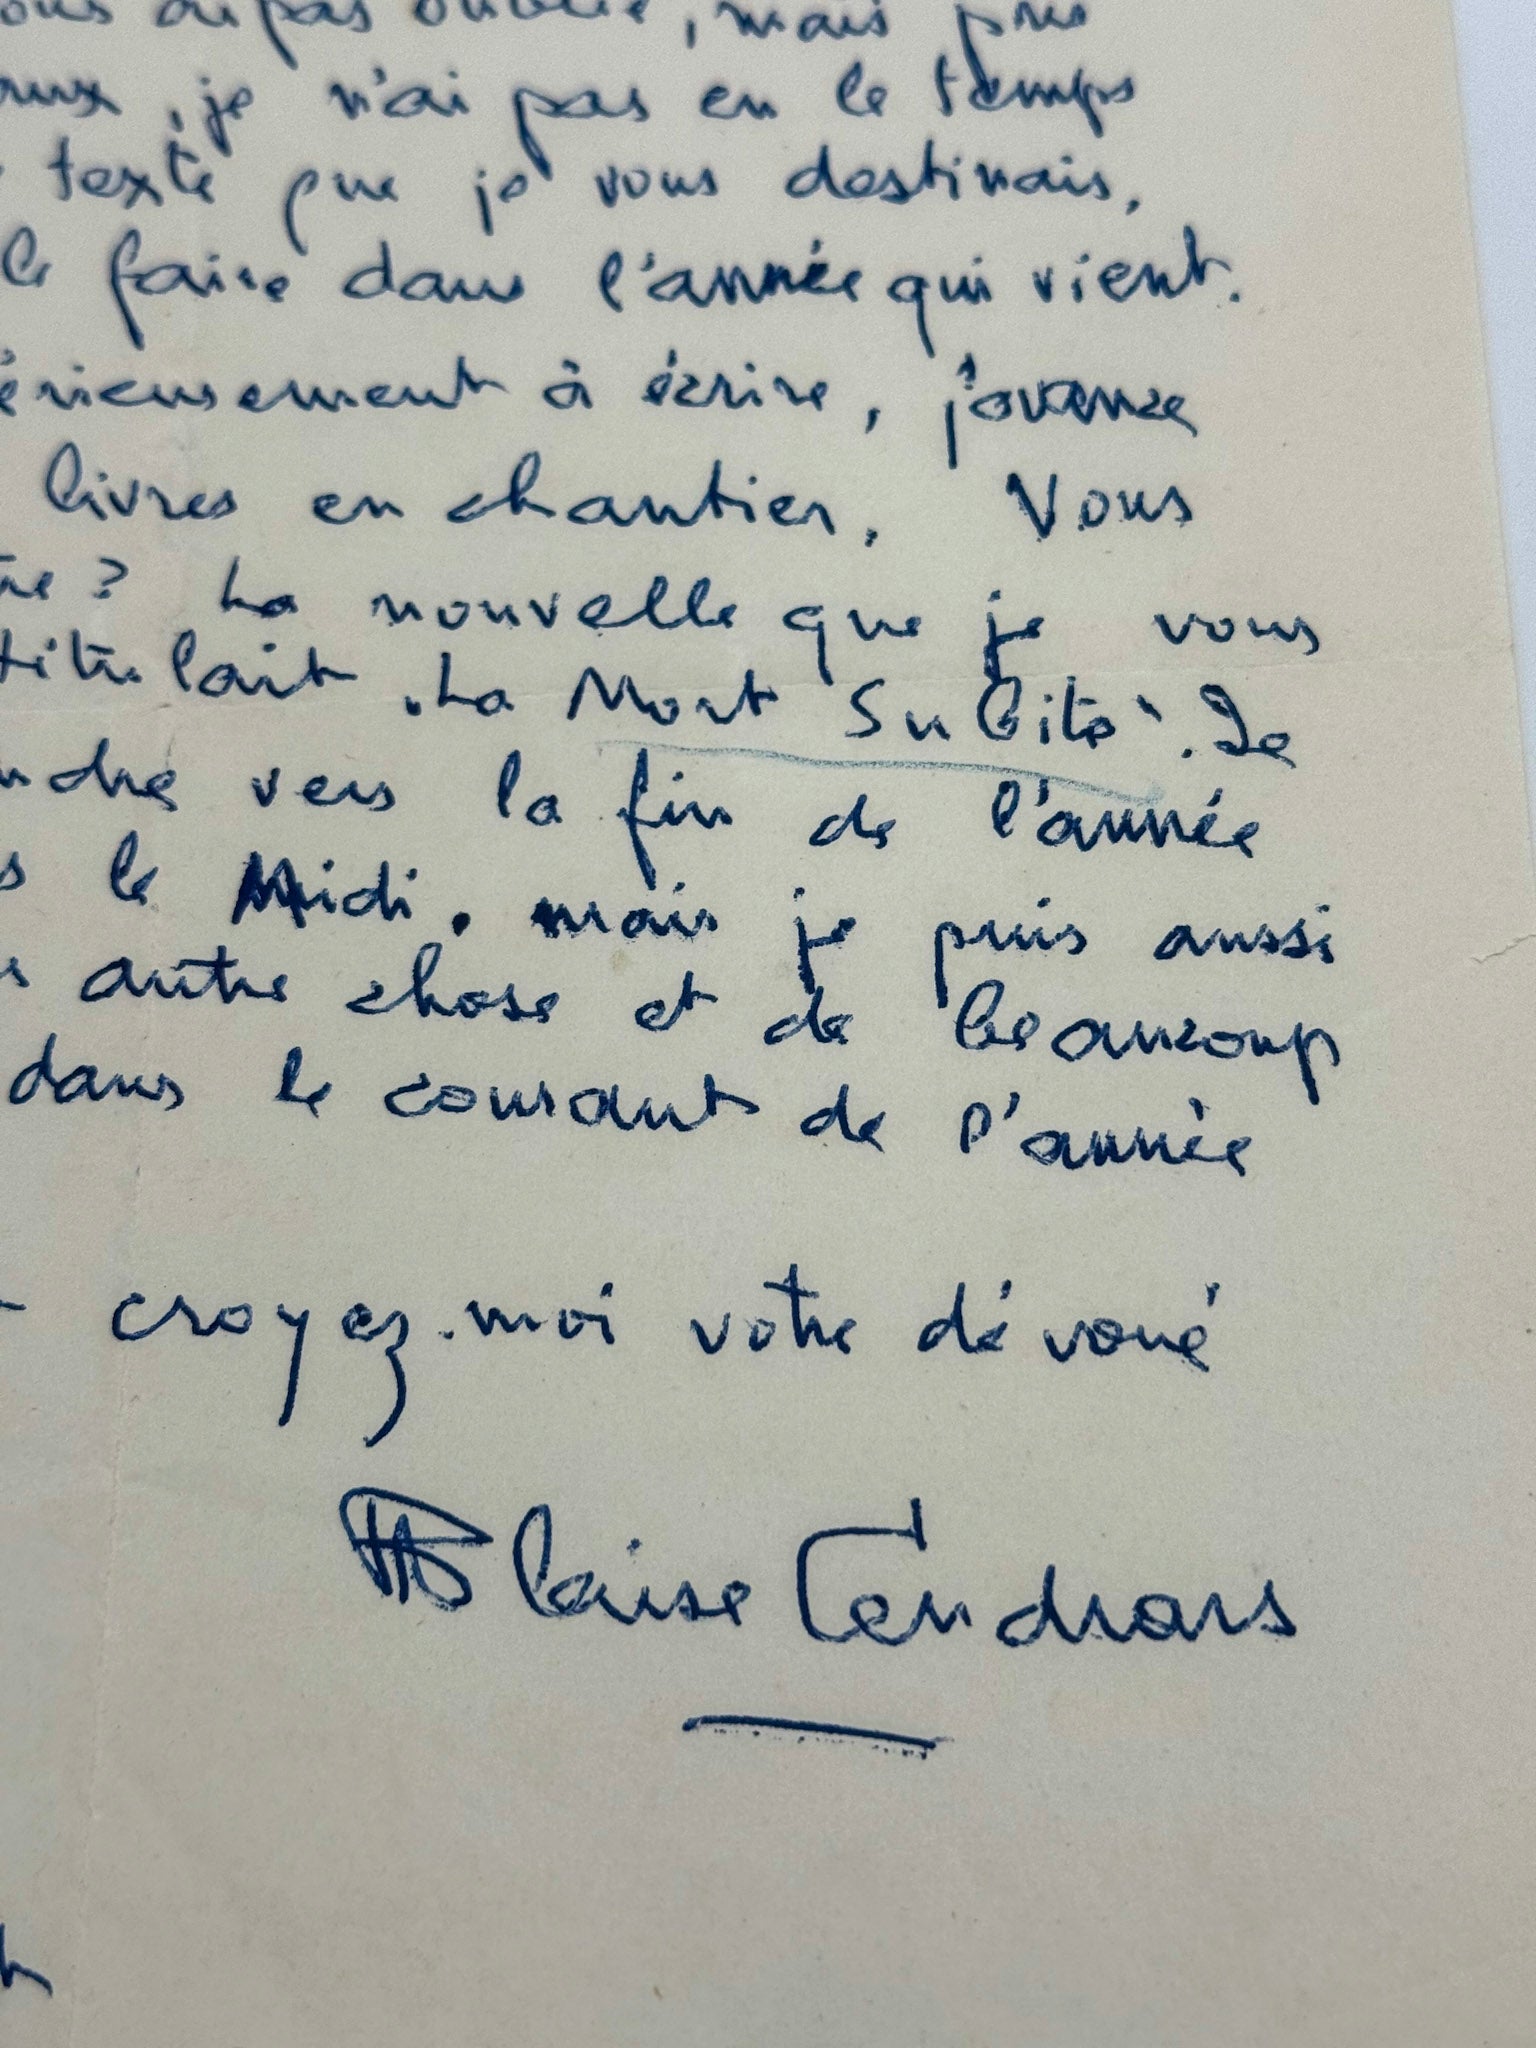 ous ai pas oublié, mais pris
aux, je n'ai pas eu le temps
texte que je vous destinais.
le faire dans l'année qui vient.
érieusement à écrire, j'avance
livres en chantier. Vous
tre? La nouvelle que je vous
titulait "La Mort Subite". Je
ndre vers la fin de l'année
s le Midi. mais je puis aussi
s autre chose et de beaucoup
dans le courant de l'année
croyez-moi votre dévoué
Blaise Cendrars